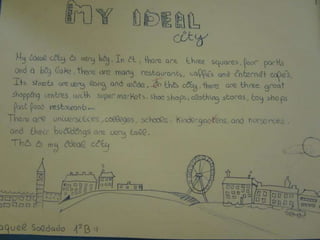 MY IDEAL
city
My ideal city is very big. In it, there are three squares, four parks
and a big lake. There are many restaurants, caffes and internet cafes.
Its streets are very long and wide. In this city, there are three great
shopping centres with supermarkets, shoe shops, clothing stores, toy shops
fast food restaurants...
There are universities, colleges, schools, kindergartens, and nurseries
and their buildings are very tall.
This is my ideal city
Raquel Soldado 1ºB